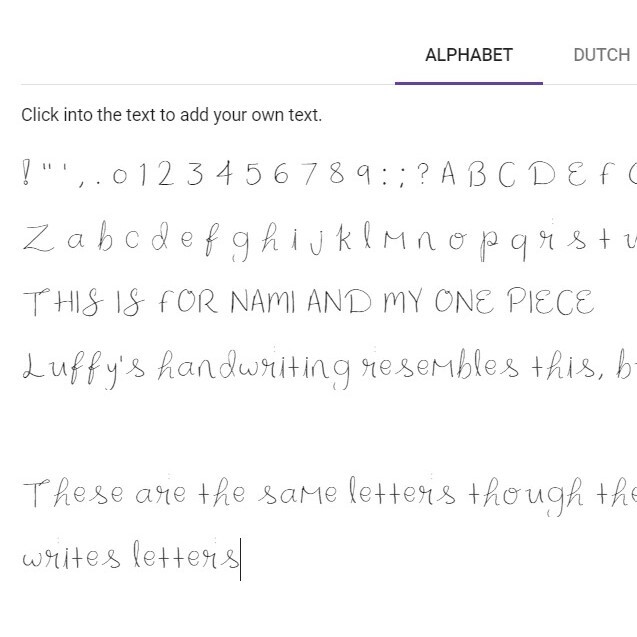 ALPHABET DUTCH
Click into the text to add your own text.
! " ' , . 0 1 2 3 4 5 6 7 8 9 : ; ? A B C D E F
Z a b c d e f g h i j k l m n o p q r s t
THIS IS FOR NAMI AND MY ONE PIECE
Luffy's handwriting resembles this,
These are the same letters though
writes letters